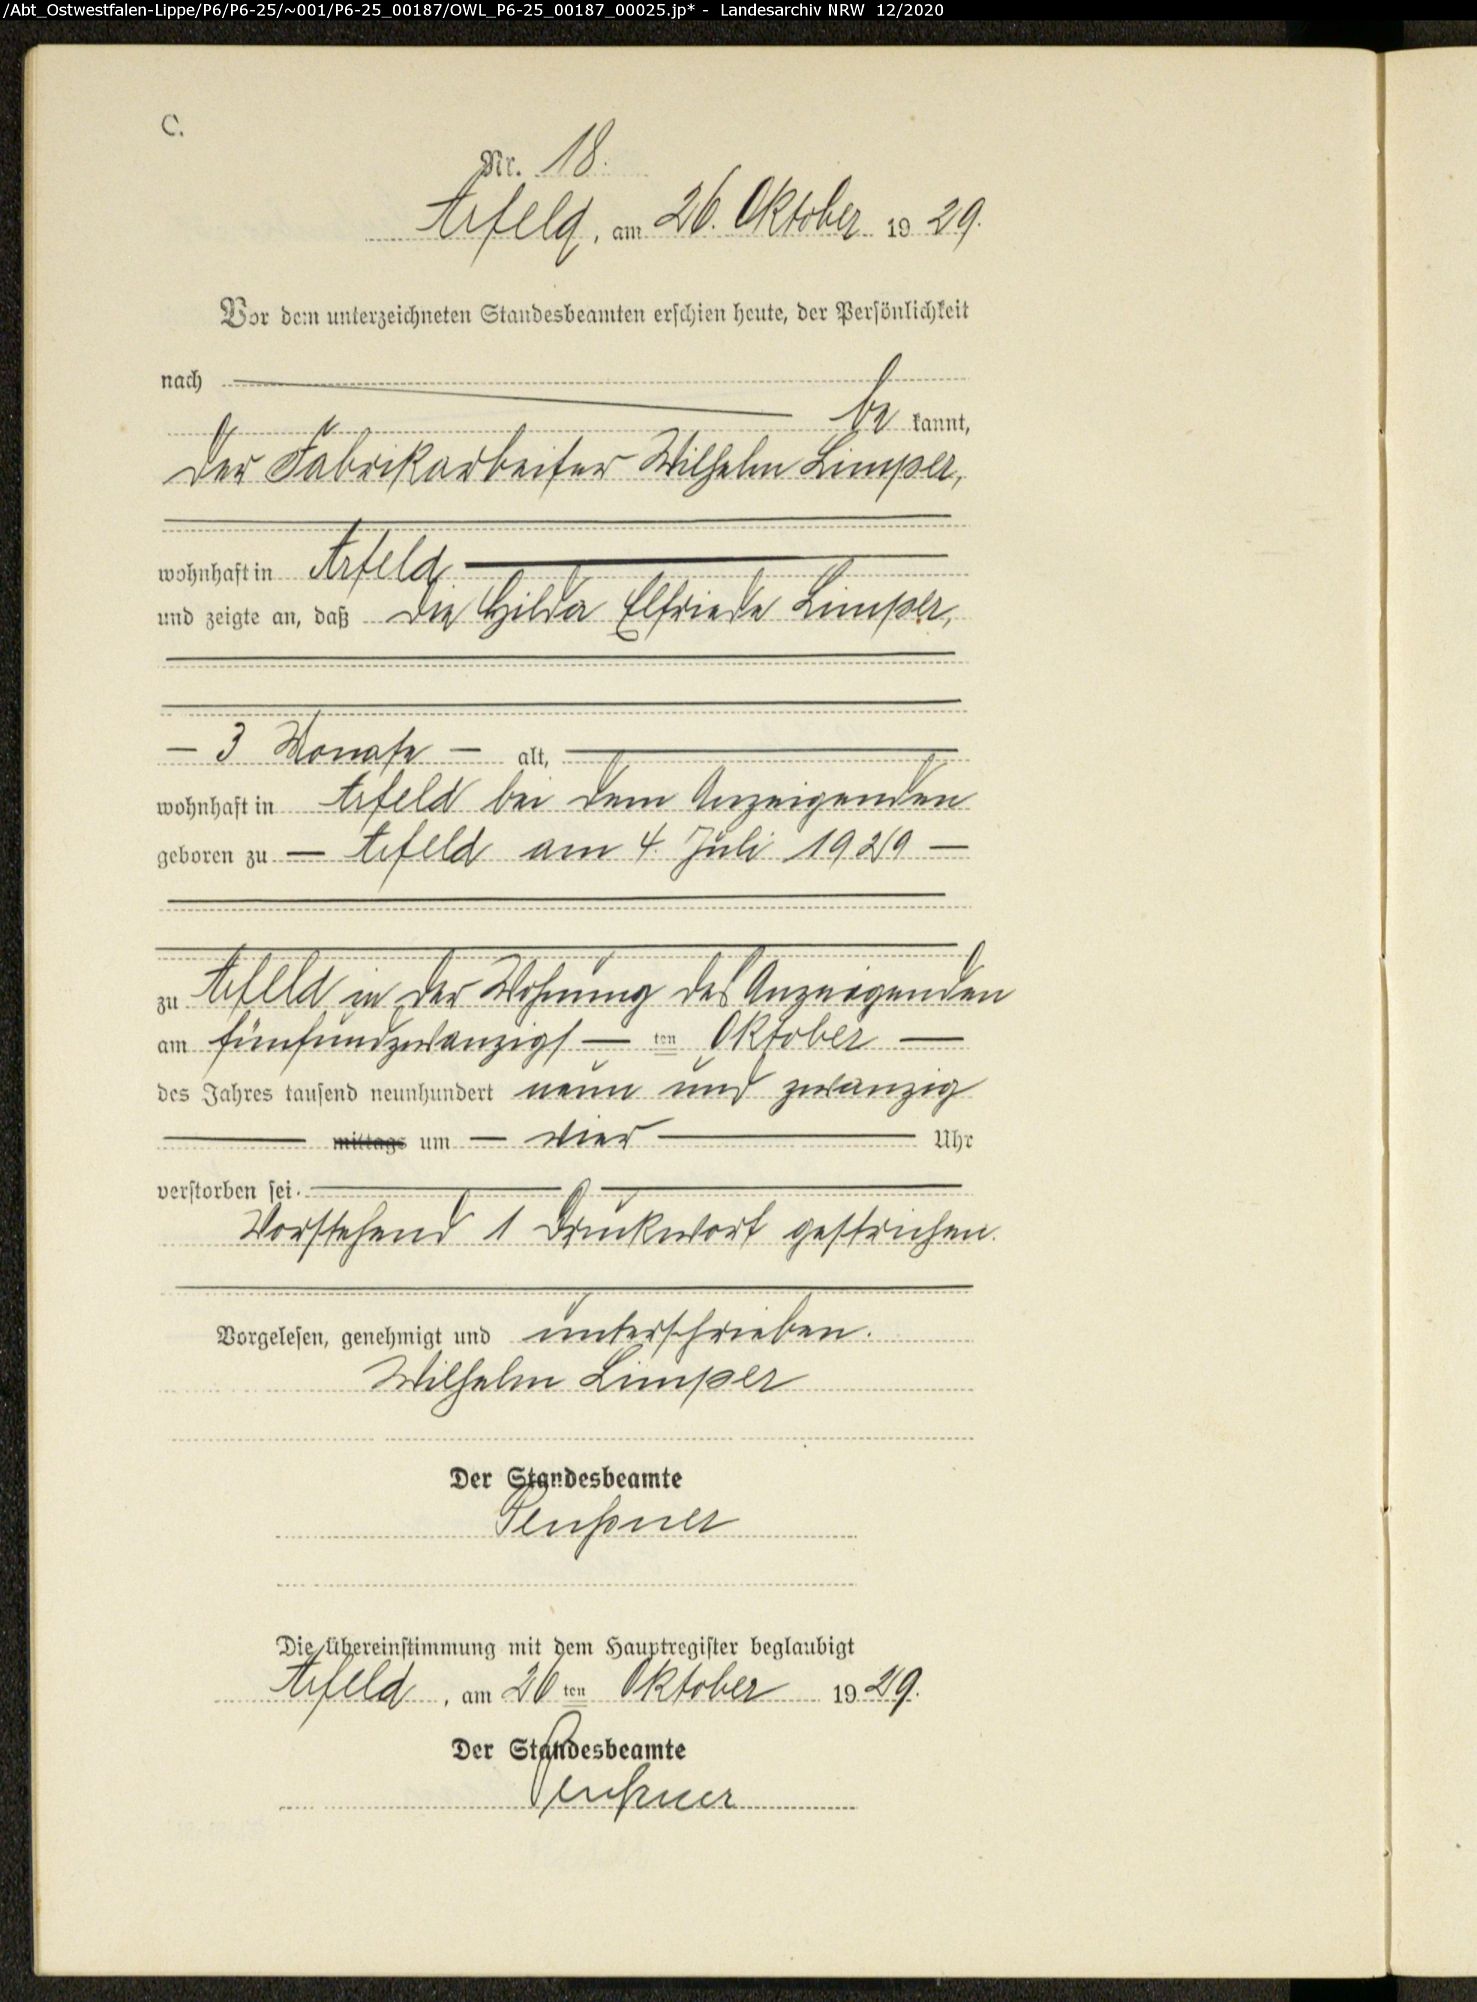 /Abt_Ostwestfalen-Lippe/P6/P6-25/~001/P6-25_00187/OWL_P6-25_00187_00025.jp* - Landesarchiv NRW 12/2020
C.
Nr. 18.
Arfeld, am 26. Oktober 1929.
Vor dem unterzeichneten Standesbeamten erschien heute, der Persönlichkeit
nach
be kannt,
der Fabrikarbeiter Wilhelm Limper,
wohnhaft in Arfeld
und zeigte an, daß die Hilda Elfriede Limper,
— 3 Monate — alt,
wohnhaft in Arfeld bei dem Anzeigenden
geboren zu — Arfeld am 4. Juli 1929 —
zu Arfeld in der Wohnung des Anzeigenden
am fünfundzwanzigs — ten Oktober —
des Jahres tausend neunhundert neun und zwanzig
— mittags um — vier — Uhr
verstorben sei.
Vorstehend 1 Druckwort gestrichen.
Vorgelesen, genehmigt und unterschrieben.
Wilhelm Limper
Der Standesbeamte
Die Übereinstimmung mit dem Hauptregister beglaubigt
Arfeld, am 26 ten Oktober 1929.
Der Standesbeamte